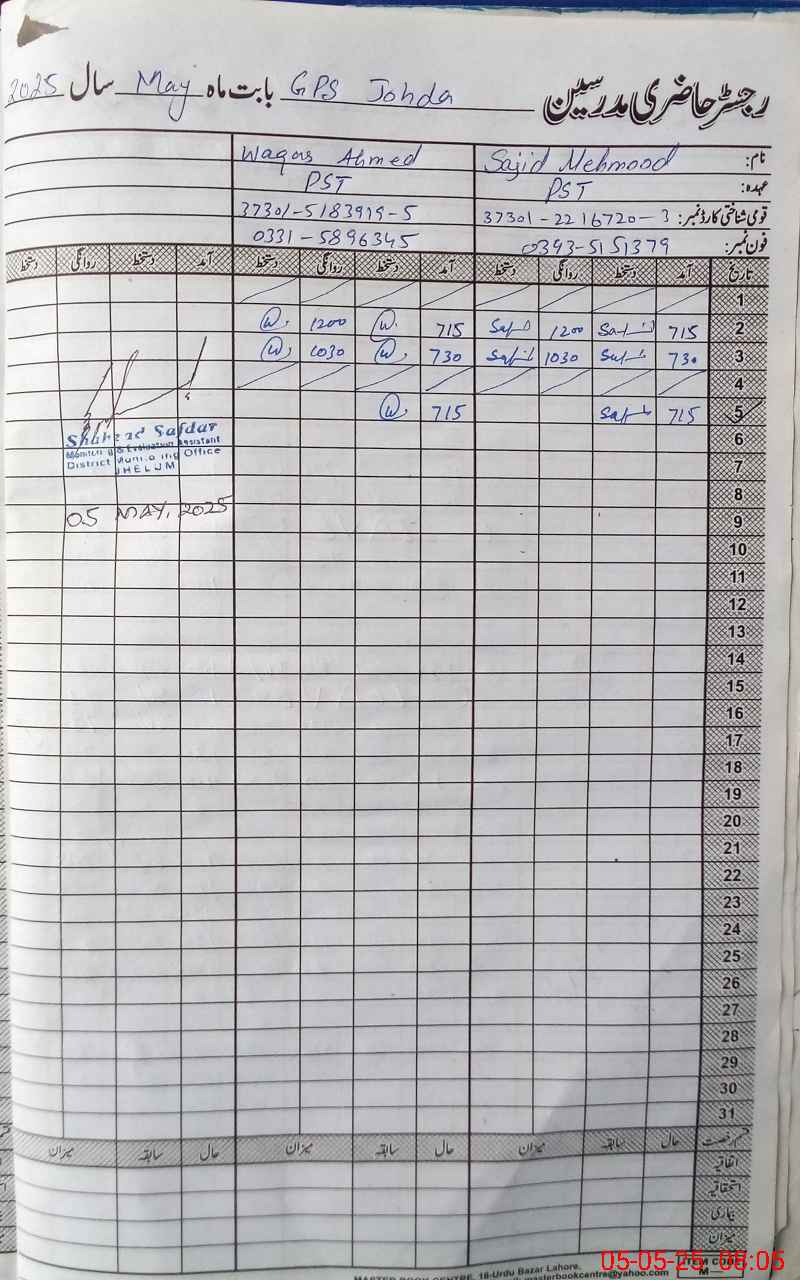 رجسٹر حاضری مدرسین GPS Johda بابت ماہ May سال 2025
نام: Sajid Mehmood Waqas Ahmed
عہدہ: PST PST
قومی شناختی کارڈ نمبر: 37301-2216720-3 37301-5183919-5
فون نمبر: 0343-5151379 0331-5896345
تاریخ آمد دستخط روانگی دستخط آمد دستخط روانگی دستخط آمد دستخط روانگی دستخط
1
2 715 1200 715 W. 1200 W.
3 730 1030 730 W. 1030 W.
4
5 715 715 W.
6
7
8
9
10
11
12
13
14
15
16
17
18
19
20
21
22
23
24
25
26
27
28
29
30
31
Safdar
Monitoring & Evaluation Assistant
District Monitoring Office
JHELUM
05 MAY, 2025
قسم رخصت حال سابقہ میزان حال سابقہ میزان حال سابقہ میزان
اتفاقیہ
استحقاقیہ
بیماری
میزان
MASTER BOOK CENTRE, 16-Urdu Bazar Lahore.
masterbookcentre@yahoo.com
ITEM CODE
M
05-05-25 08:05